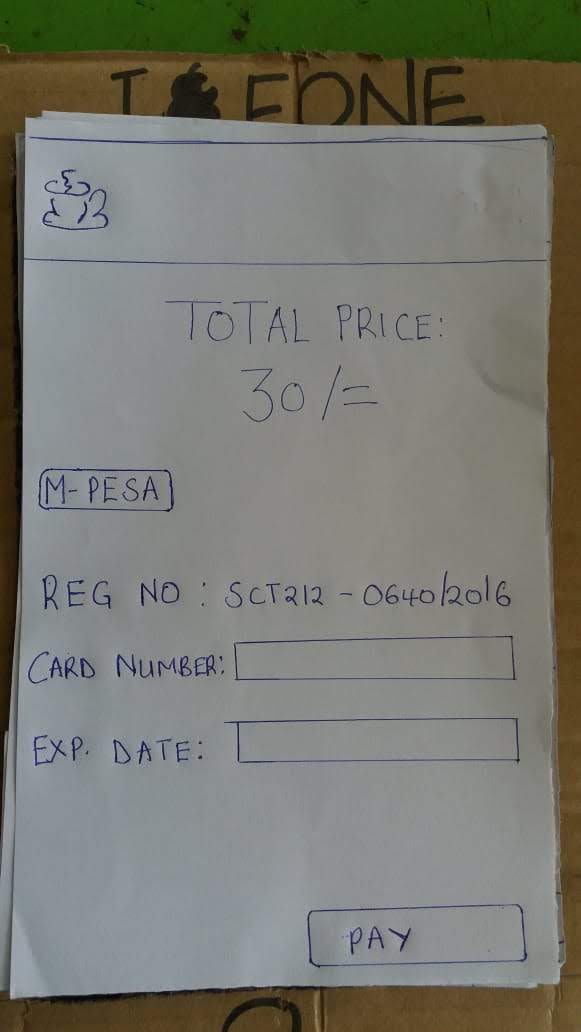 I FONE
TOTAL PRICE:
30/=
M-PESA
REG NO : SCT212-0640/2016
CARD NUMBER:
EXP. DATE:
PAY